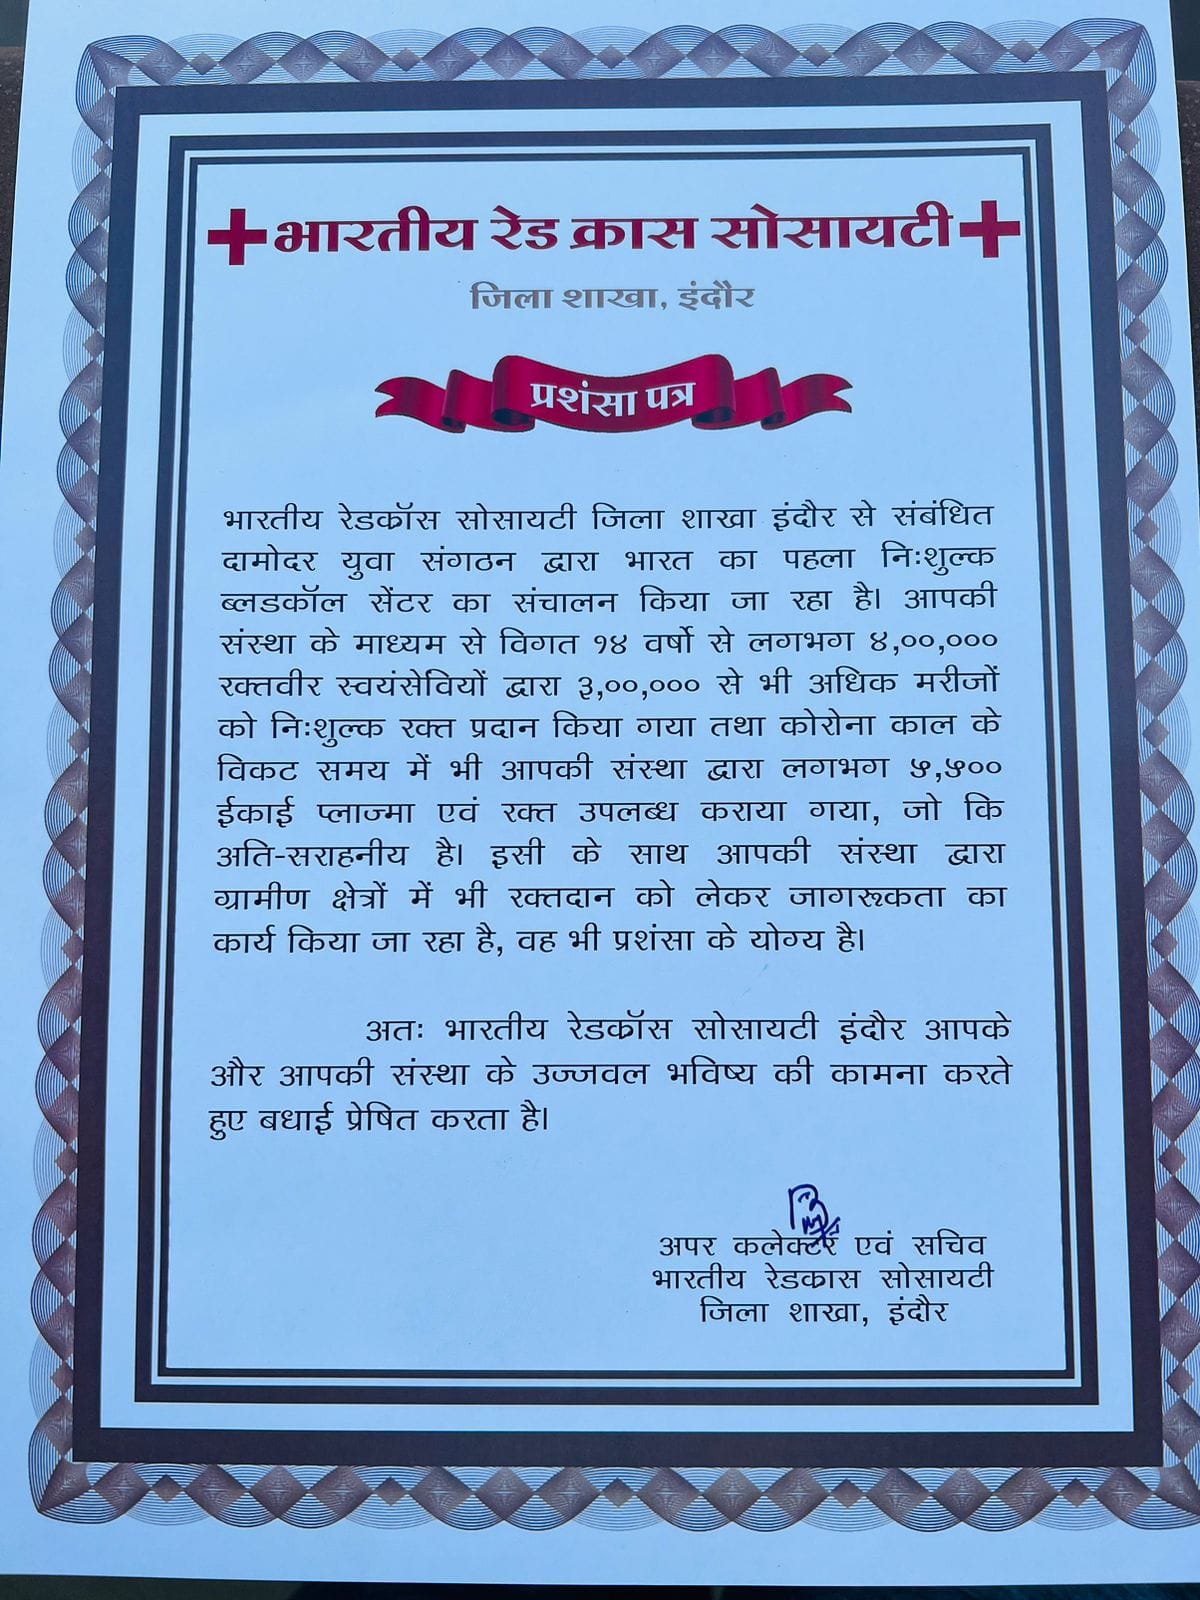 भारतीय रेड क्रास सोसायटी
जिला शाखा, इंदौर
प्रशंसा पत्र
भारतीय रेडकॉस सोसायटी जिला शाखा इंदौर से संबंधित
दामोदर युवा संगठन द्वारा भारत का पहला निःशुल्क
ब्लडकॉल सेंटर का संचालन किया जा रहा है। आपकी
संस्था के माध्यम से विगत १४ वर्षो से लगभग ४,००,०००
रक्तवीर स्वयंसेवियों द्वारा ३,००,००० से भी अधिक मरीजों
को निःशुल्क रक्त प्रदान किया गया तथा कोरोना काल के
विकट समय में भी आपकी संस्था द्वारा लगभग ५,५००
ईकाई प्लाज्मा एवं रक्त उपलब्ध कराया गया, जो कि
अति-सराहनीय है। इसी के साथ आपकी संस्था द्वारा
ग्रामीण क्षेत्रों में भी रक्तदान को लेकर जागरूकता का
कार्य किया जा रहा है, वह भी प्रशंसा के योग्य है।
अतः भारतीय रेडकॉस सोसायटी इंदौर आपके
और आपकी संस्था के उज्जवल भविष्य की कामना करते
हुए बधाई प्रेषित करता है।
अपर कलेक्टर एवं सचिव
भारतीय रेडकास सोसायटी
जिला शाखा, इंदौर